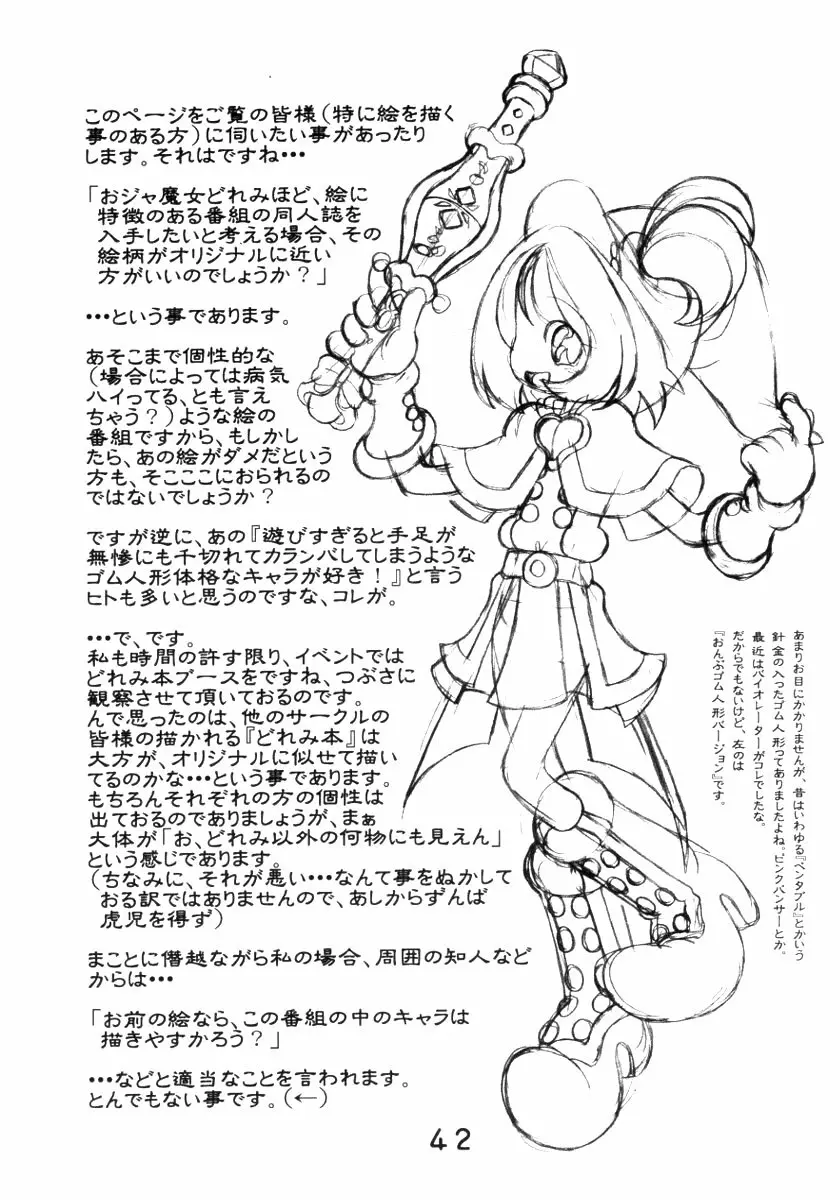 このページをご覧の皆様(特に絵を描く
事のある方)に伺いたい事があったり
します。それはですね・・・
「おジャ魔女どれみほど、絵に
特徴のある番組の同人誌を
入手したいと考える場合、その
絵柄がオリジナルに近い
方がいいのでしょうか?」
・・・という事であります。
あそこまで個性的な
(場合によっては病気
ハイってる、とも言え
ちゃう?)ような絵の
番組ですから、もしかし
たら、あの絵がダメだという
方も、そこここにおられるの
ではないでしょうか?
ですが逆に、あの『遊びすぎると手足が
無惨にも千切れてカランバしてしまうような
ゴム人形体格なキャラが好き!』と言う
ヒトも多いと思うのですな、コレが。
・・・で、です。
私も時間の許す限り、イベントでは
どれみ本ブースをですね、つぶさに
観察させて頂いておるのです。
んで思ったのは、他のサークルの
皆様の描かれる『どれみ本』は
大方が、オリジナルに似せて描い
てるのかな・・・という事であります。
もちろんそれぞれの方の個性は
出ておるのでありましょうが、まぁ
大体が「お、どれみ以外の何物にも見えん」
という感じであります。
(ちなみに、それが悪い・・・なんて事をぬかして
おる訳ではありませんので、あしからずんば
虎児を得ず)
まことに僭越ながら私の場合、周囲の知人など
からは・・・
「お前の絵なら、この番組の中のキャラは
描きやすかろう?」
・・・などと適当なことを言われます。
とんでもない事です。(←)
あまりお目にかかりませんが、昔はいわゆる『ベンタブル』とかいう
針金の入ったゴム人形ってありましたよね。ピンクパンサーとか。
最近はバイオレーターがコレでしたな。
だからでもないけど、左のは
『おんぷゴム人形バージョン』です。
42